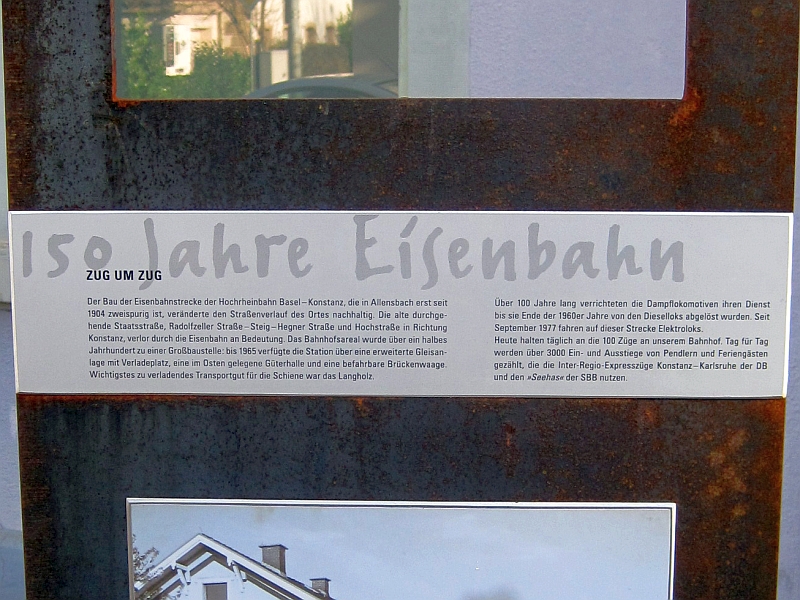 150 Jahre Eisenbahn
ZUG UM ZUG
Der Bau der Eisenbahnstrecke der Hochrheinbahn Basel – Konstanz, die in Allensbach erst seit
1904 zweispurig ist, veränderte den Straßenverlauf des Ortes nachhaltig. Die alte durchge-
hende Staatsstraße, Radolfzeller Straße – Steig – Hegner Straße und Hochstraße in Richtung
Konstanz, verlor durch die Eisenbahn an Bedeutung. Das Bahnhofsareal wurde über ein halbes
Jahrhundert zu einer Großbaustelle: bis 1965 verfügte die Station über eine erweiterte Gleisan-
lage mit Verladeplatz, eine im Osten gelegene Güterhalle und eine befahrbare Brückenwaage.
Wichtigstes zu verladendes Transportgut für die Schiene war das Langholz.
Über 100 Jahre lang verrichteten die Dampflokomotiven ihren Dienst
bis sie Ende der 1960er Jahre von den Dieselloks abgelöst wurden. Seit
September 1977 fahren auf dieser Strecke Elektroloks.
Heute halten täglich an die 100 Züge an unserem Bahnhof. Tag für Tag
werden über 3000 Ein- und Ausstiege von Pendlern und Feriengästen
gezählt, die die Inter-Regio-Expresszüge Konstanz – Karlsruhe der DB
und den »Seehas« der SBB nutzen.